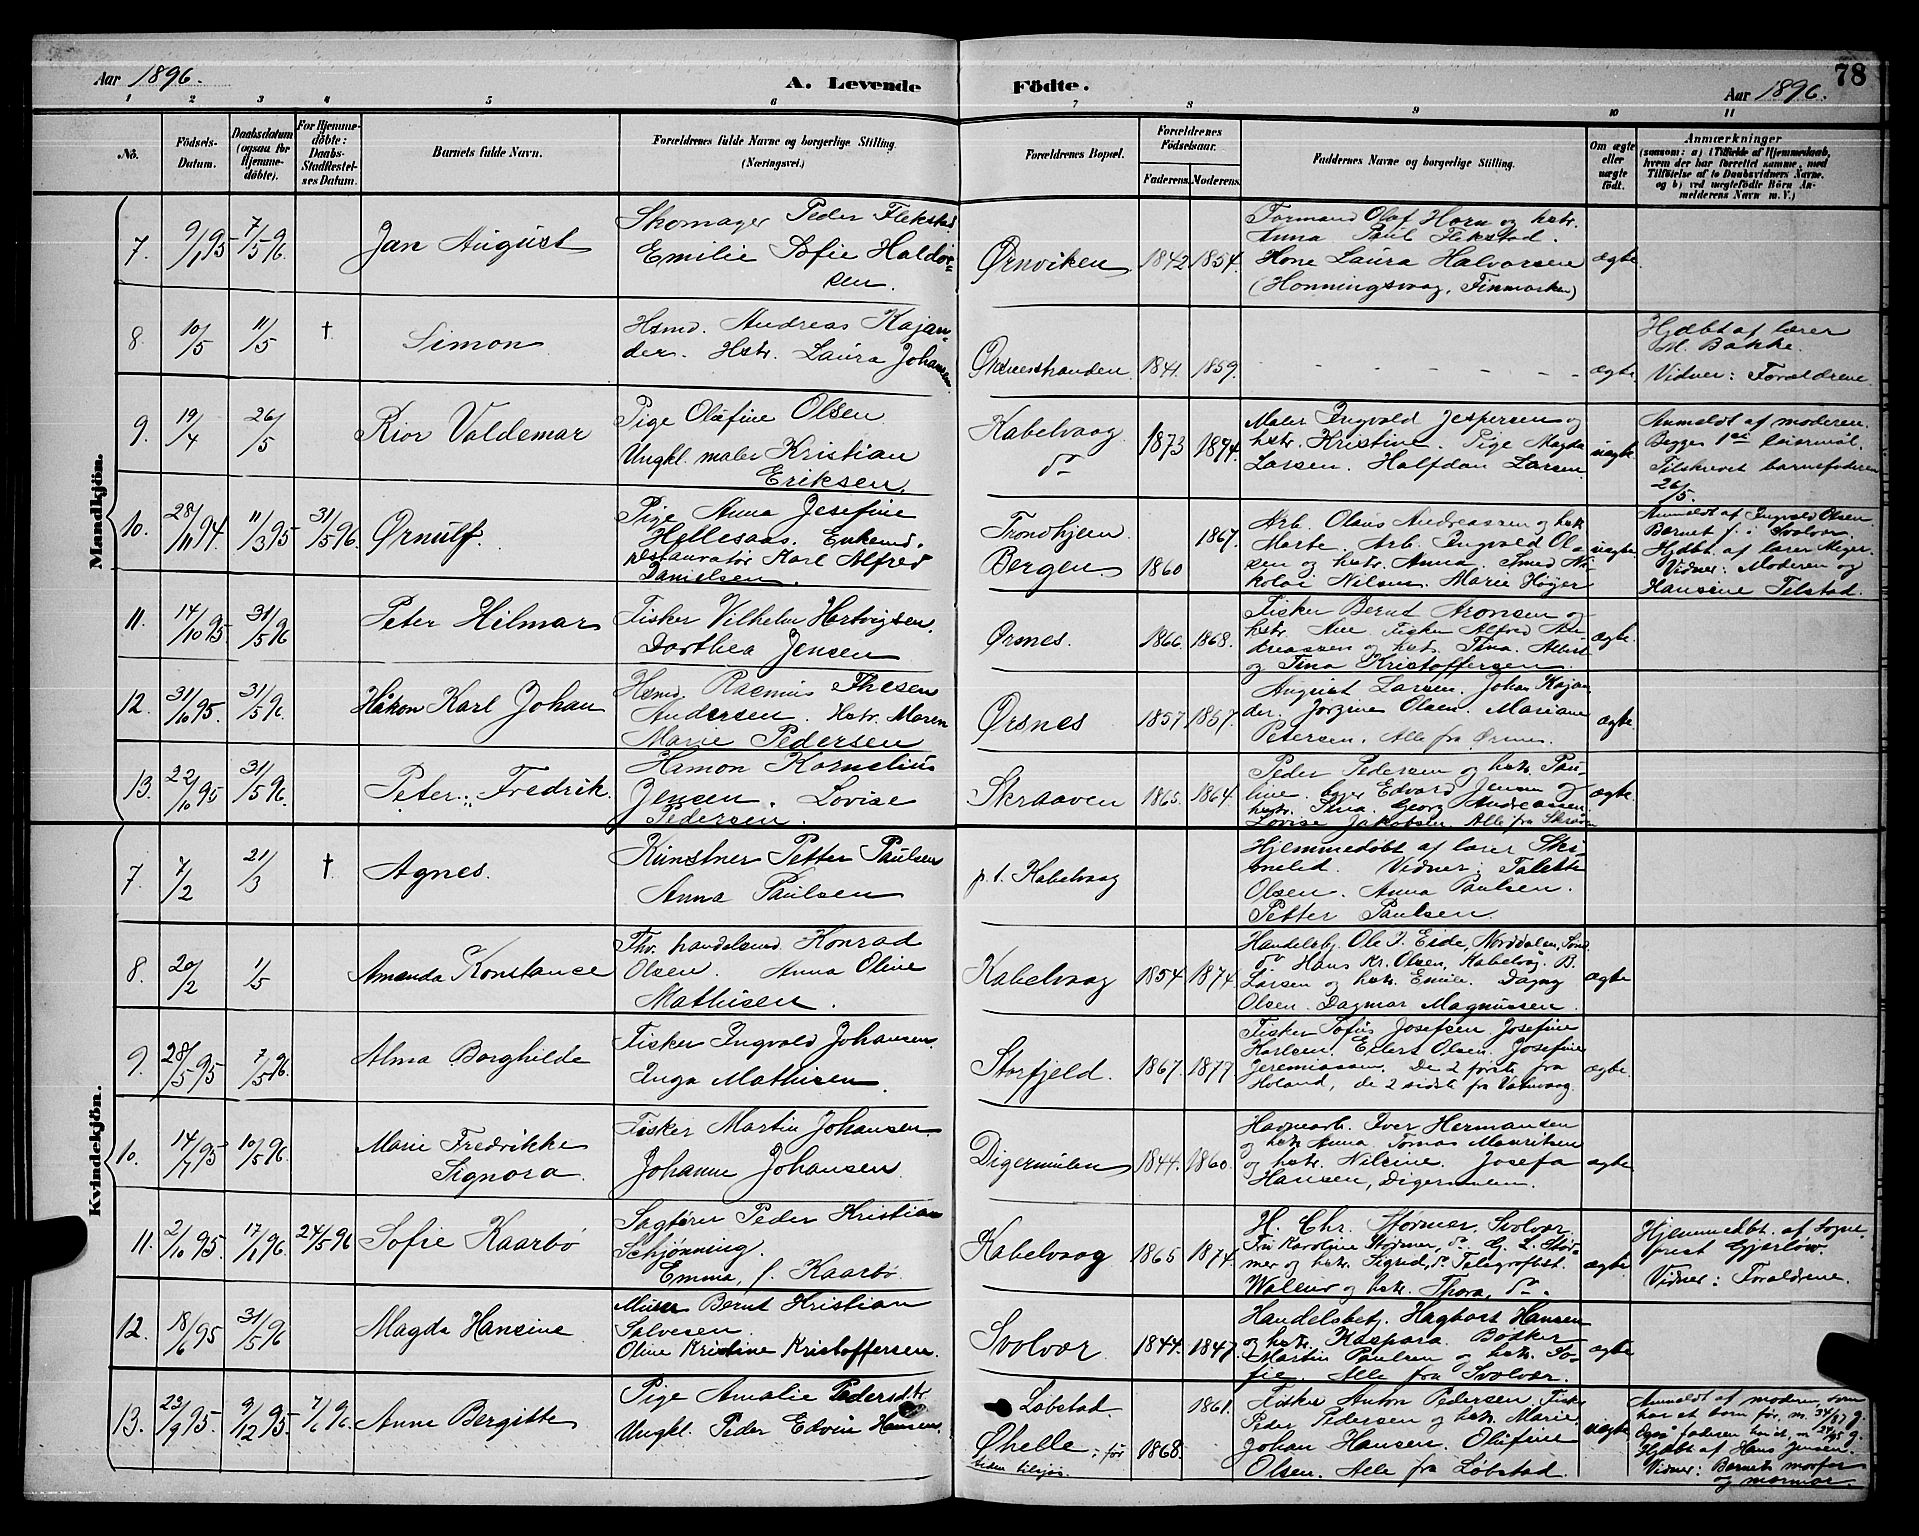 Aar 1896.
A. Levende
Födte.
Aar 1896.
78
1 2 3 4 5 6 7 8 9 10 11
No.
Födsels-
Datum.
Daabsdatum
(ogsaa for
Hjemme-
döbte).
For Hjemme-
döbte:
Daabs-
Stadfæstel-
ses Datum.
Barnets fulde Navn.
Forældrenes fulde Navne og borgerlige Stilling.
(Næringsvei.)
Forældrenes Bopæl.
Forældrenes
Födselsaar.
Faderens. Moderens.
Faddernes Navne og borgerlige Stilling.
Om ægte
eller
uægte
födt.
Anmærkninger
(saasom: a) i Tilfælde af Hjemmedaab,
hvem der har forrettet samme, med
Tilföielse af to Daabsvidners Navne,
og b) ved uægtefödte Börn An-
melderens Navn m. V.)
Mandkjön.
7. 9/1 95 7/5 96. Jan August
Skomager Peder Flekstad
Emilie Sofie Haldor-
sen.
Ørnviken 1842 1854.
Formand Olaf Horn og hstr.
Anna Paul Flekstad.
Kone Laura Halvorsen
(Honningsvaag, Finmarken)
ægte.
8. 10/5 11/5 † Simon
Hsmd. Andreas Kajan-
der. Hstr. Laura Johansen
1841. 1859.
- - - - - -
ægte.
Hjdbt af lærer
M. Bakke.
Vidner: Forældrene
9. 19/4 26/5 Rior Valdemar
Pige Olufine Olsen
Ungkl. maler Kristian
Eriksen.
Kabelvaag
do
1873 1874.
Maler Ingvold Jespersen og
hstr. Kristine. Pige Magda
Larsen. Halfdan Larsen
uægte
Anmeldt af moderen.
Begges 1ste leiermål.
Tilskrevet barnefaderen
26/5.
10. 28/11 94. 11/3 95 31/5 96. Ørnulf.
Pige Anna Josefine
Hellesaas. Enkemd.
restauratør Karl Alfred
Danielsen.
Trondhjem
Bergen
1860 1867.
Arb. Olaus Andreassen og hstr.
Marte. Arb. Ingvald Ol-
sen og hstr. Anna. Smed Ni-
kolai Nilsen. Marie Høyer
uægte
Anmeldt af Ingvald Olsen
Barnet f. i Svolvær.
Hjdbt af lærer Meyer.
Vidner: Moderen og
Hansine Tilstad.
11. 14/10 95. 31/5 96 Peter Hilmar
Fisker Vilhelm Hartvigsen.
Dorthea Jensen
Ørsnes. 1866. 1868.
Fisker Bernt Aronsen og
hstr. Ane. Fisker Alfred An-
dreassen og hstr. Tina. Albert
og Tina Kristoffersen.
ægte.
12. 31/10 95. 31/5 96. Håkon Karl Johan
Hsmd. Rasmus Thesen
Andersen. Hstr. Maren
Marie Pedersen
Ørsnes 1857 1857.
August Larsen. Johan Kajan
der. Jorgine Olsen. Mariane
Petersen. Alle fra Ørsnes.
ægte.
13. 22/10 95 31/5 96. Peter Fredrik.
Hamon Kornelius
Jensen. Lovise
Pedersen.
Skraaven 1865. 1864.
Peder Pedersen og hstr. Pau-
line. Edvard Jensen og
hstr. Stina. Georg Andreassen.
Lovise Jakobsen. Alle fra Skråven
ægte.
Kvindekjön.
7. 7/2 21/3 † Agnes.
Kunstner Petter Paulsen
Anna Paulsen
p. t. Kabelvaag
Hjemmedøbt af lærer Ski-
melid. Vidner: Talette
Olsen. Anna Paulsen.
Petter Paulsen.
8. 20/2 1/5 Amanda Konstance
Fhv. handelsmd. Konrad
Olsen. Anna Oline
Mathisen.
Kabelvaag 1854. 1874.
Handelsbj. Ole J. Eide, Norddalen, Sønd.
do Hans Kr. Olsen, Kabelvåg. B.
Larsen og hstr. Emile. Dagny
Olsen. Dagmar Magnussen
ægte
9. 28/5 95 7/5 96. Alma Borghilde
Fisker Ingvald Johansen.
Inga Mathisen.
Storfjeld. 1867. 1877
Fisker Sofus Josefsen. Josefine
Karlsen. Eilert Olsen. Josefine
Jeremiassen. De 2 første fra
Holand, de 2 sidste fra
ægte.
10. 14/7 95 10/5 96. Marie Fredrikke
Signora.
Fisker Martin Johansen.
Johanne Johansen.
Digermulen 1844. 1860.
Havnearb. Iver Hermansen
og hstr. Anna. Tomas Mauritsen
og hstr. Nilsine. Josefa
Hansen, Digermulen.
ægte
11. 2/10 95. 17/1 96. 24/5 96 Sofie Kaarbø
Sagfører Peder Kristian
Schjønning.
Emma, f. Kaarbø.
Kabelvaag 1865 1874.
H. Chr. Størmer, Svolvær.
Fru Karoline Størmer, do. G. L. Stør-
mer og hstr. Sigrid, do. Telegrafbst.
og hstr. Thora, do.
ægte
Hjemmedbt. af sogne-
prest Gjerløw.
Vidner: Forældrene.
12. 18/6 95 31/5 96 Magda Hansine
Bernt Kristian
Salvesen.
Oline Kristine Kristoffersen.
Svolvær 1844. 1847.
Handelsbetj. Hagbart Hansen
og hstr. Kaspara. Bøtker
Martin Paulsen og hstr. So-
fie. Alle fra Svolvær.
ægte
13. 23/9 95. 9/12 95. 7/6 96. Anne Bergitte
Pige Amalie Pedersdtr.
Ungkl. Peder Edvin Hansen.
Løbstad.
1868. 1861.
Fisker Anton Pedersen. Fisker
Peder Pedersen og hstr. Marie
Johan Hansen. Olufine
Olsen. Alle fra Løbstad.
uægte
Anmeldt af moderen som
har et barn før,
Også faderen har et,
Hjdbt af Hans Jensen.
Vidner: Barnets morfar
og mormor.